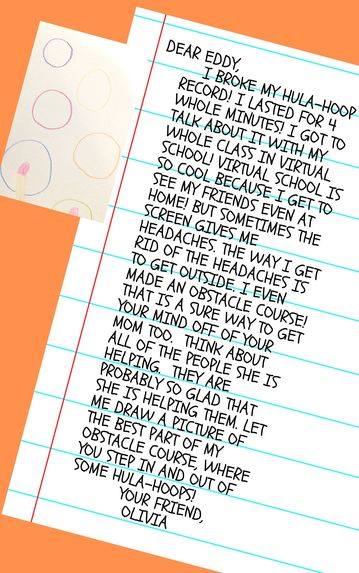 DEAR EDDY,
I BROKE MY HULA-HOOP
RECORD! I LASTED FOR 4
WHOLE MINUTES! I GOT TO
TALK ABOUT IT WITH MY
WHOLE CLASS IN VIRTUAL
SCHOOL! VIRTUAL SCHOOL IS
SO COOL BECAUSE I GET TO
SEE MY FRIENDS EVEN AT
HOME! BUT SOMETIMES THE
SCREEN GIVES ME
HEADACHES. THE WAY I GET
RID OF THE HEADACHES IS
TO GET OUTSIDE. I EVEN
MADE AN OBSTACLE COURSE!
THAT IS A SURE WAY TO GET
YOUR MIND OFF OF YOUR
MOM TOO. THINK ABOUT
ALL OF THE PEOPLE SHE IS
HELPING. THEY ARE
PROBABLY SO GLAD THAT
SHE IS HELPING THEM. LET
ME DRAW A PICTURE OF
THE BEST PART OF MY
OBSTACLE COURSE, WHERE
YOU STEP IN AND OUT OF
SOME HULA-HOOPS!
YOUR FRIEND,
OLIVIA